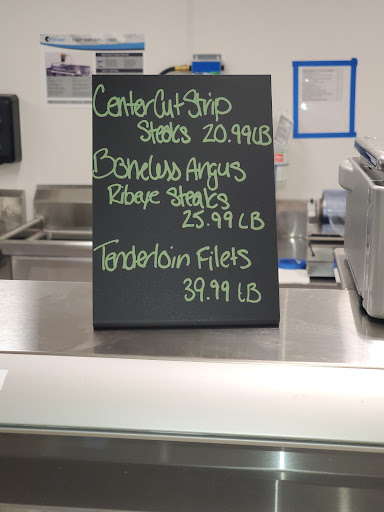 Center Cut Strip
Steaks 20.99 LB
Boneless Angus
Ribeye Steaks
25.99 LB
Tenderloin Filets
39.99 LB